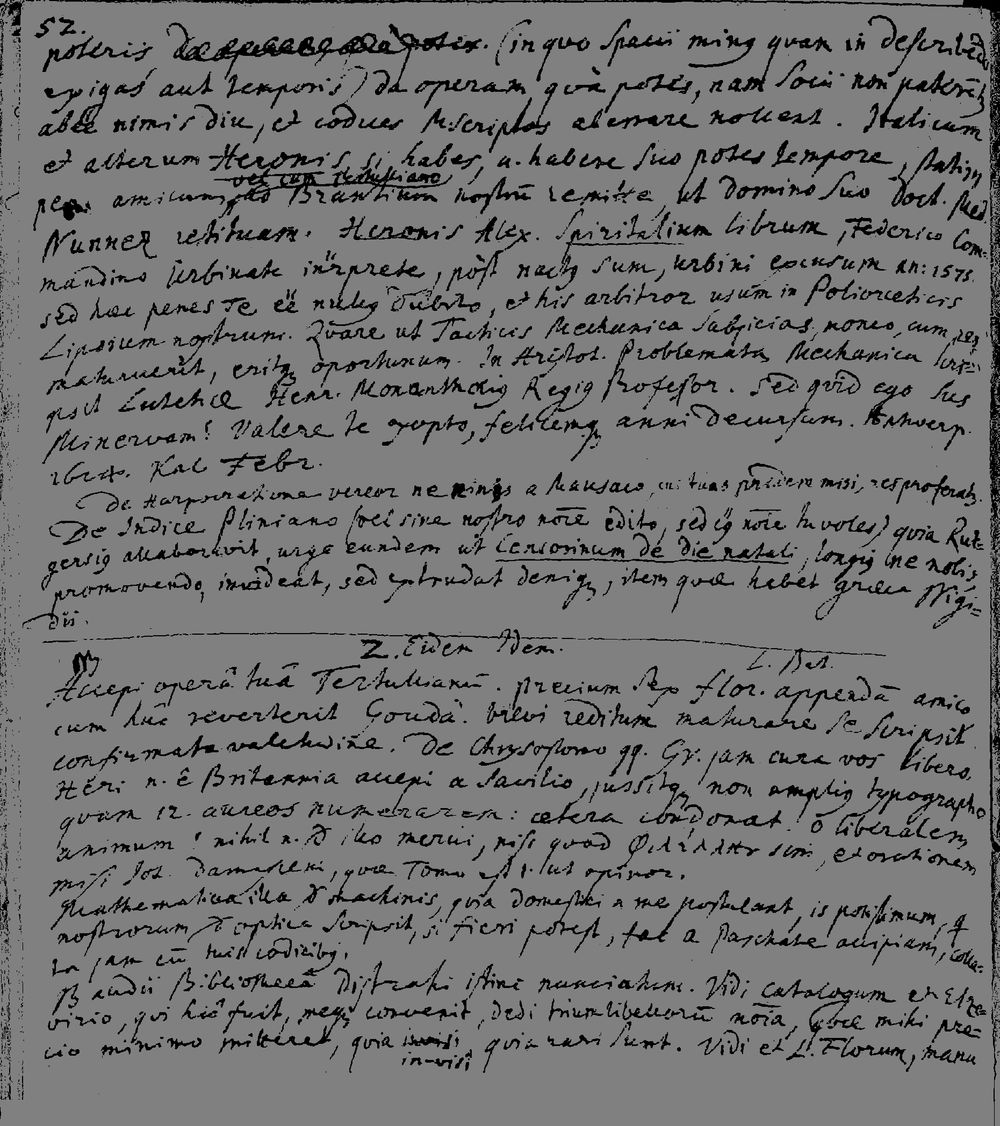 52.
poteris (in quo spacii minus quam in describēdo
exigas aut temporis) da operam, quà potes, nam Socii non patientur
abēē nimis diu, et codices Mscriptos aberrare nollent. Italicum
et alterum Heronis, si habes, a. habere suo potes tempore, statim
vel cum Tertulliano
per amicum ad Brantium nostrū remitte, ut domino suo Doct. Med
Nunnez restituam. Heronis Alex. Spiritalium librum, Federico Com-
mandino Urbinate interprete, pòst nactus sum, Urbini excusum an: 1575.
sed hæc penes Te ēē nullus dubito, et his arbitror usum in Poliorceticis
Lipsium nostrum. Quare ut Tacticis Mechanica subjicias, moneo, cum res
maturuerit, eritq; oportunum. In Aristot. Problemata Mechanica scrip-
sit Lutetiæ Henr. Monantholius Regius Professor. Sed quid ego Sus
Minervam? Valere te exopto, felicemq; anni decursum. Antwerp.
1614. Kal Febr.
De Harpocratione vereor ne minus a Maussaco, cui tuas pridem misi, res proferatur.
De Indice Pliniano (vel sine nostro noīe edito, sed quo noīe tu voles) quia Rut-
gersius allaboravit, urge eundem ut Censorinum de die natali, longius ne nobis
promovendo, invideat, sed extrudat deniq;, item quæ habet græca Nigi-
dii.
2. Eidem Idem.
L. Bat.
Accepi operâ tuâ Tertullianū. precium sex flor. appendā amico
cum hūc reverterit Goudâ. brevi reditum maturare se scripsit
confirmata valetudine. De Chrysostomo gg. Gr. jam cura vos libero.
Heri n. è Britannia accepi a Savilio, jussitq; non amplius typographo
quam 12. aureos numerarem: cætera condonat. ô liberalem
animum! nihil n. de illo merui, nisi quod Φιλέλλην sim, et orationem
misi Jo. Damasceni, quæ Tomo est 1. ut opinor.
Mathematica illa de machinis, quia domestici a me postulant, is potissimum, q
nostrorum de optica scripsit, si fieri potest, fac a Paschate accipiam, colla-
ta jam cū tuis codicibus.
Baudii Bibliothecā distrahi istinc nunciatum. Vidi catalogum et Elze-
virio, qui hîc fuit, meq; convenit, dedi trium libellorū noīa, quæ mihi pre-
cio minimo mitteret, quia invisi, quia rari sunt. Vidi et L. Florum, manu
in-visi